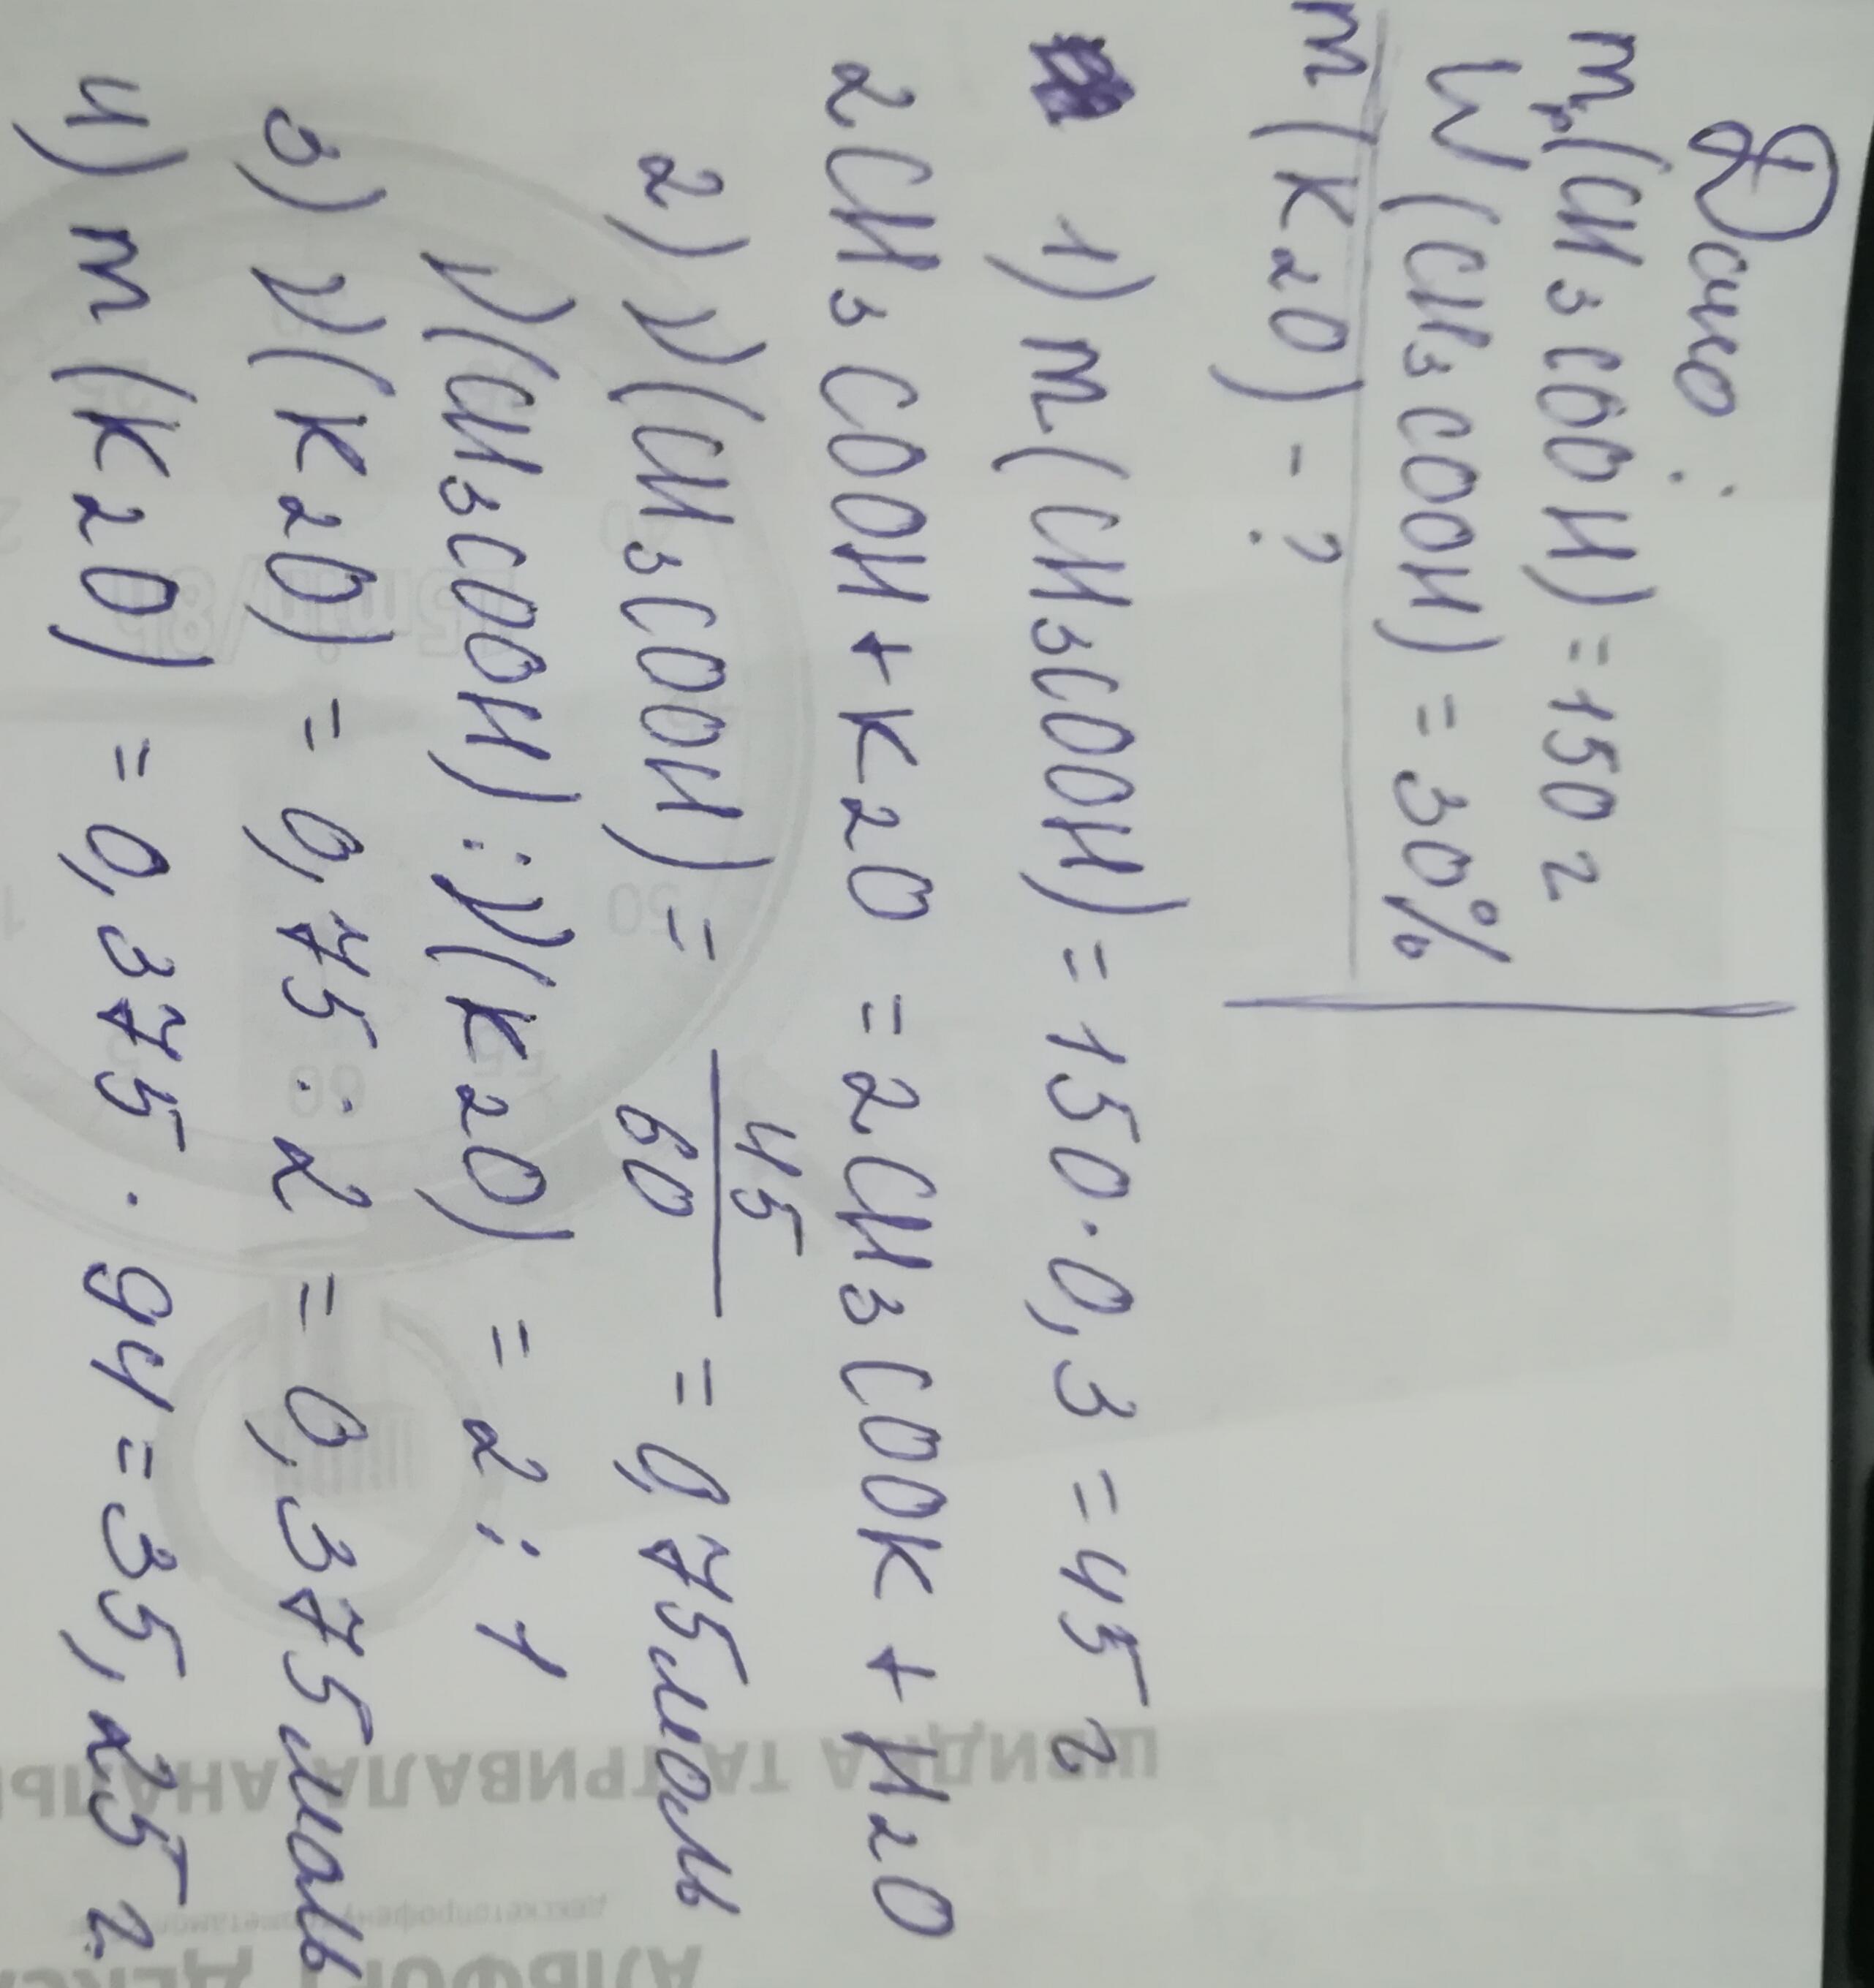 Дано:
mр(CH3COOH) = 150 г
W(CH3COOH) = 30%
m(K2O) - ?
1) m(CH3COOH) = 150 · 0,3 = 45 г
2CH3COOH + K2O = 2CH3COOK + H2O
2) ν(CH3COOH) = 45/60 = 0,75 моль
ν(CH3COOH) : ν(K2O) = 2 : 1
3) ν(K2O) = 0,75 : 2 = 0,375 моль
4) m(K2O) = 0,375 · 94 = 35,25 г
ШВИДКА ТА ТРИВАЛА АНАЛЬ